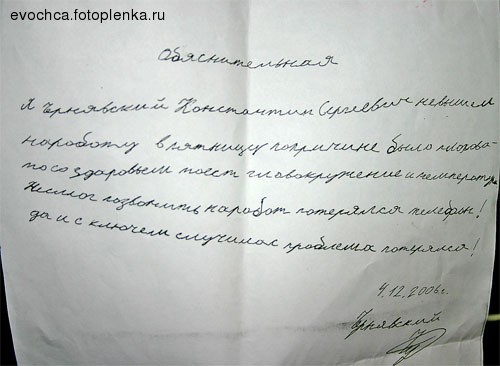 evochca.fotoplenka.ru
Обяснительная
Я Чернявский Константин Сергеевич невышел
наработу в пятницу попричине было плорова-
то со здоровьем тоест гловокружение и температура
Несмог позвонить наработ потерялся телефин!
да и с ключем случилас проблема потерялся!
4.12.2006г.
Чрнявский